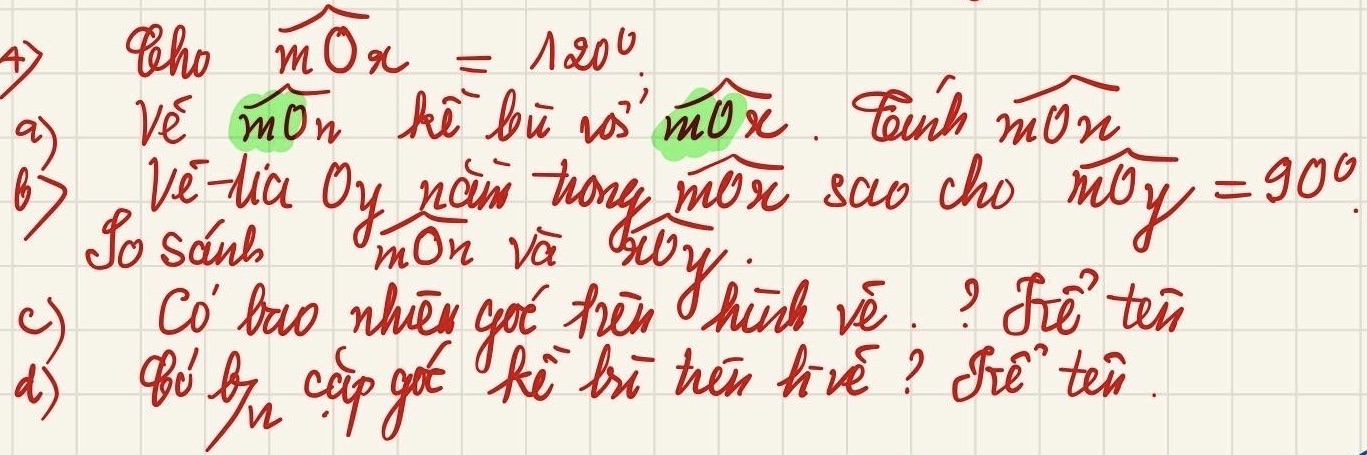 4) Cho mOx = 120⁰.
a) Vẽ mOn kề bù với mOx. Tính mOn
b) Vẽ tia Oy nằm trong mOx sao cho mOy = 90⁰.
So sánh mOn và xOy.
c) Có bao nhiêu góc trên hình vẽ.? Kể tên
d) Có b/n cặp góc kề bù trên h vẽ? Kể tên.